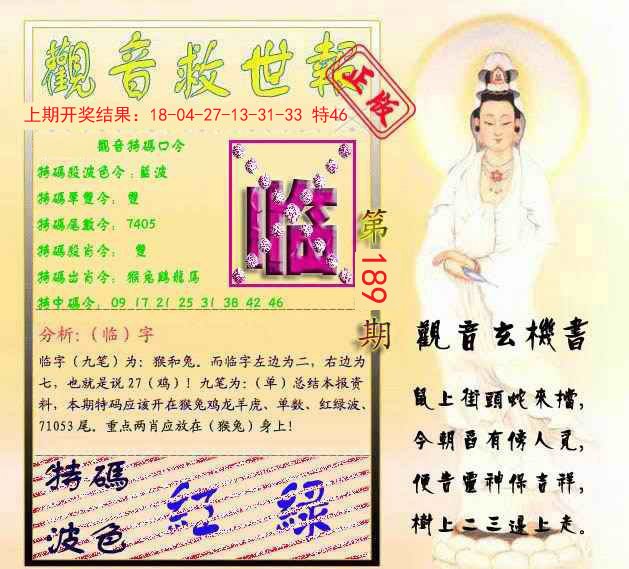 觀音救世報
正版
上期开奖结果：18-04-27-13-31-33 特46
觀音特碼口令
特碼段波色令：藍波
特碼單雙令： 雙
特碼尾數令： 7405
特碼段肖令： 雙
特碼出肖令： 猴兔鷄龍馬
特中碼令： 09 17 21 25 31 38 42 46
临
第189期
分析：（临）字
临字（九笔）为：猴和兔。而临字左边为二，右边为
七，也就是说27（鸡）！九笔为：（单）总结本报资
料，本期特码应该开在猴兔鸡龙羊虎、单数、红绿波、
71053尾。重点两肖应放在（猴兔）身上！
特碼
波色
紅 綠
觀音玄機書
鼠上街頭蛇來擋，
今朝酉有傍人見，
便告靈神保吉祥，
樹上二三邊上走。